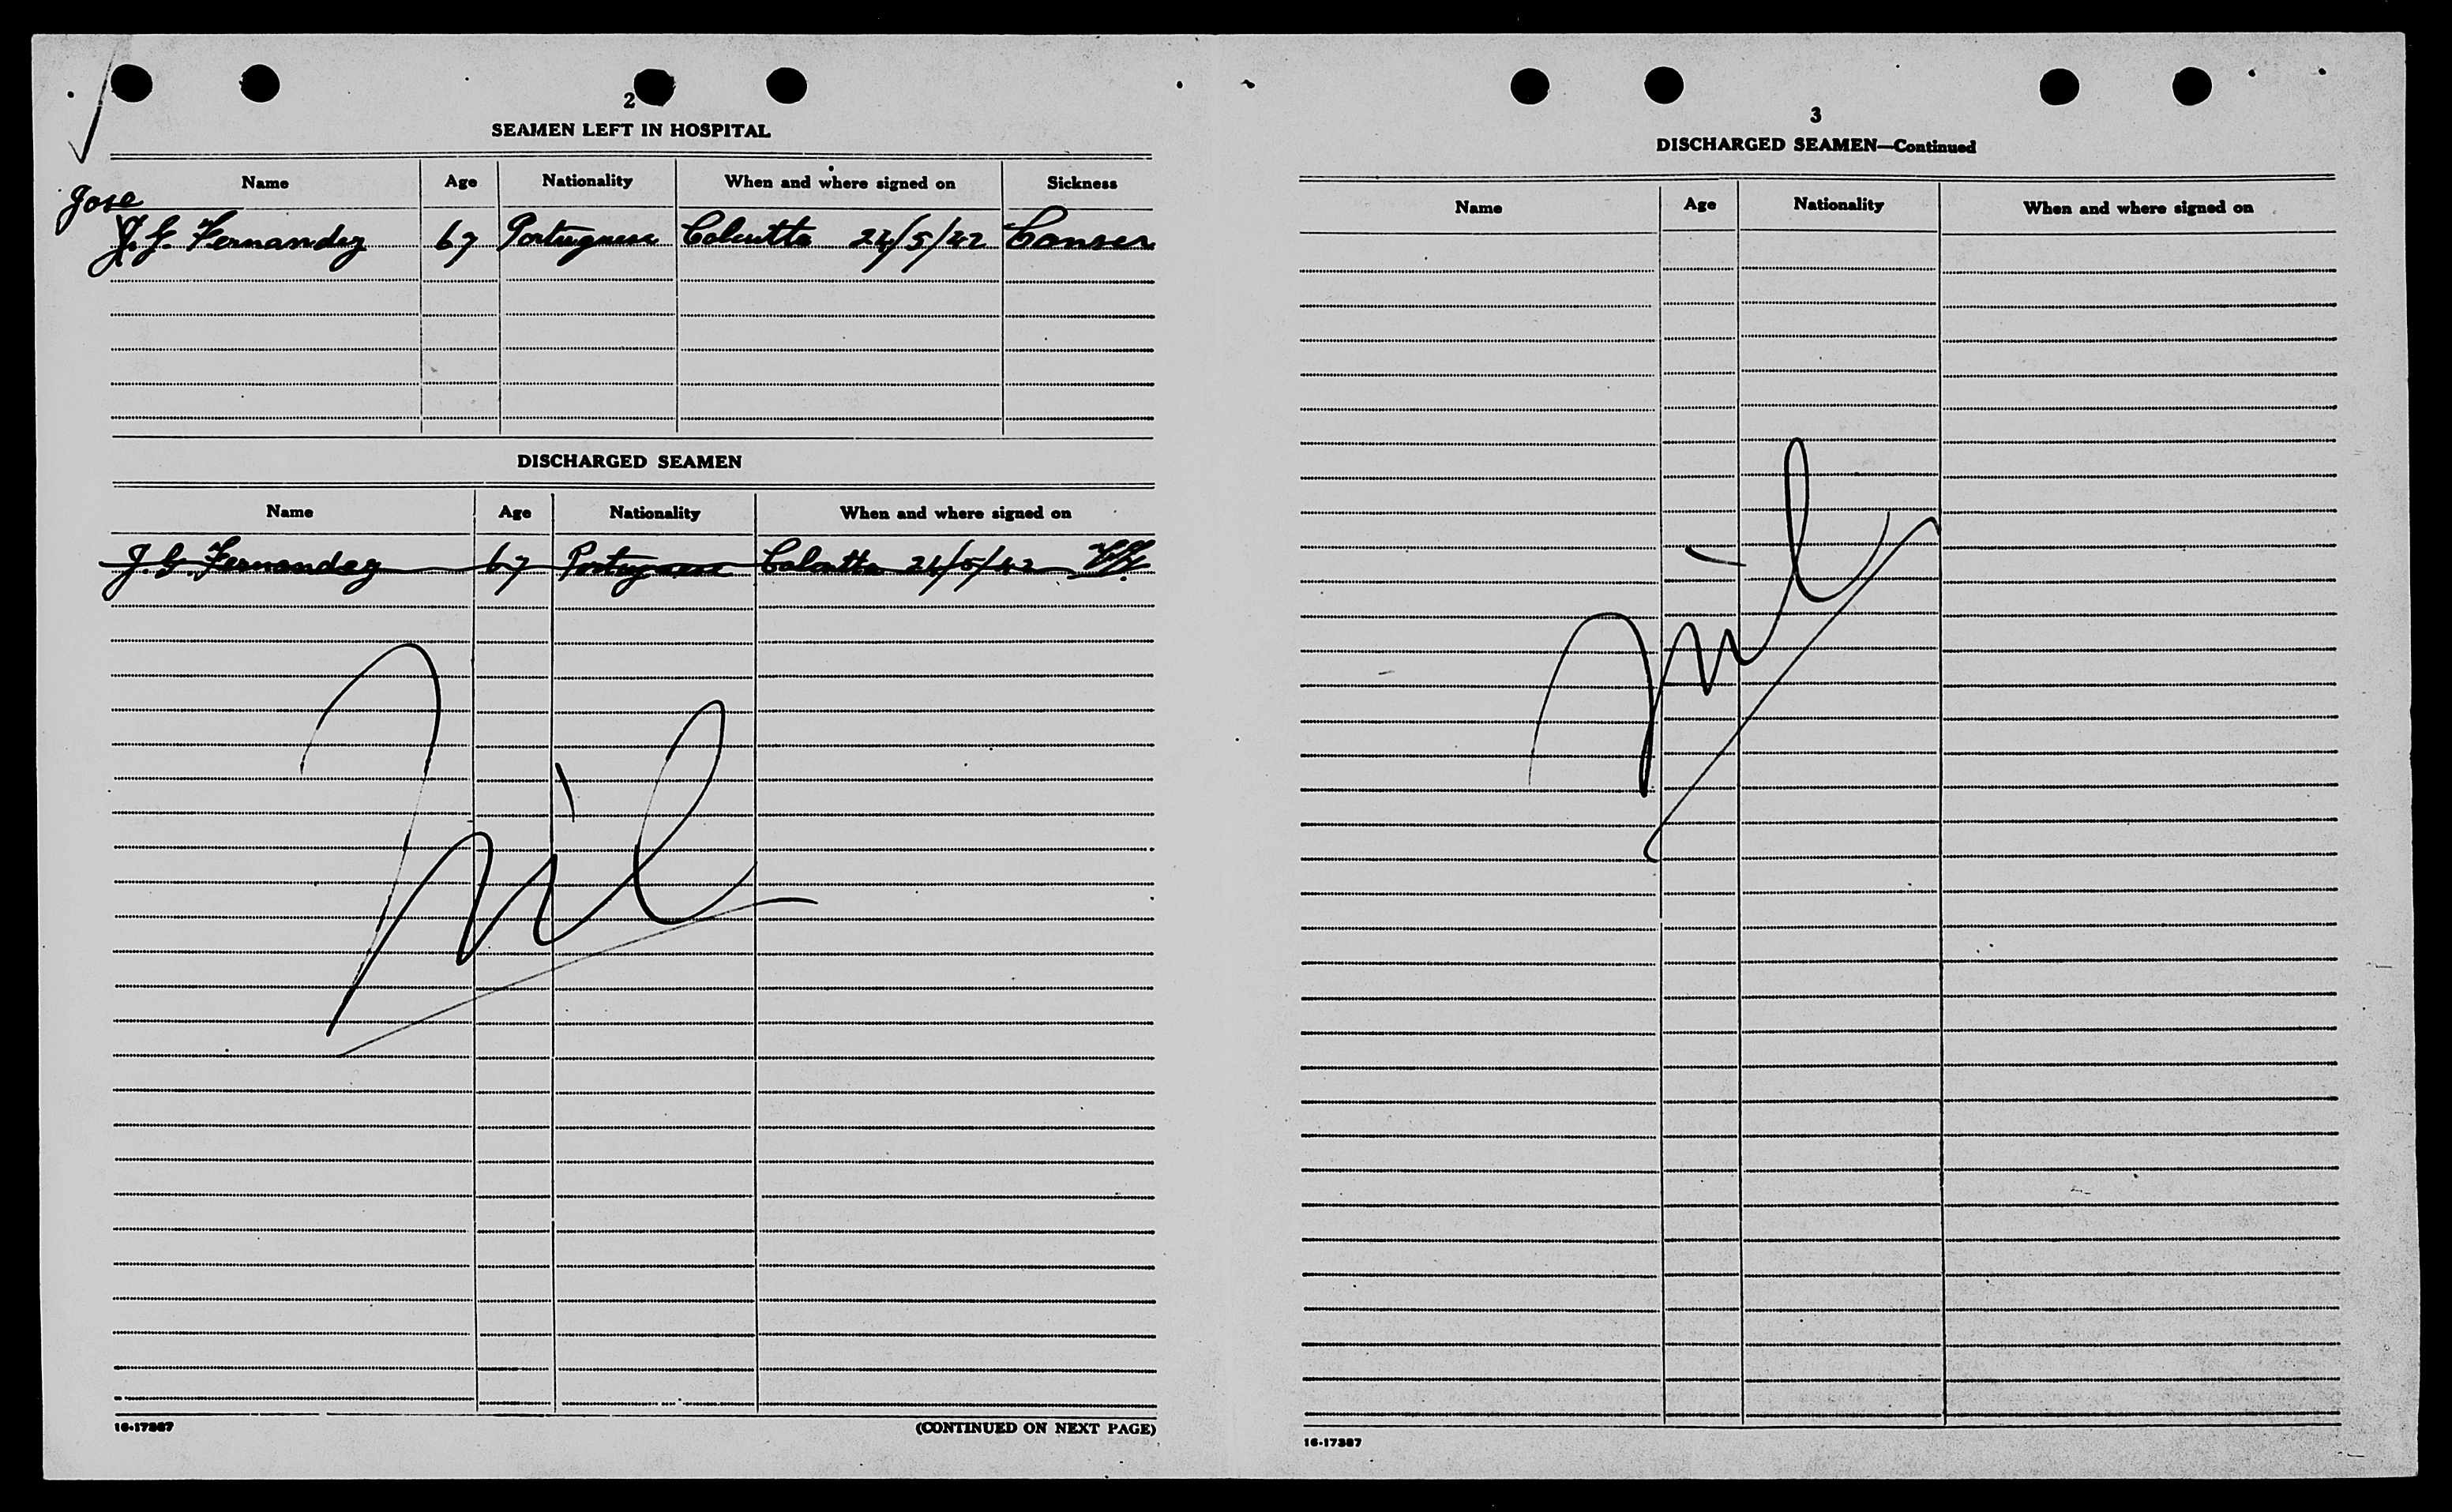 2
SEAMEN LEFT IN HOSPITAL
Name Age Nationality When and where signed on Sickness
Jose
J. G. Fernandez 67 Portuguese Calcutta 24/5/42 Canser
DISCHARGED SEAMEN
Name Age Nationality When and where signed on
J. G. Fernandez 67 Portuguese Calcutta 24/5/42
Nil
16-17387
(CONTINUED ON NEXT PAGE)
3
DISCHARGED SEAMEN—Continued
Name Age Nationality When and where signed on
Nil
16-17387